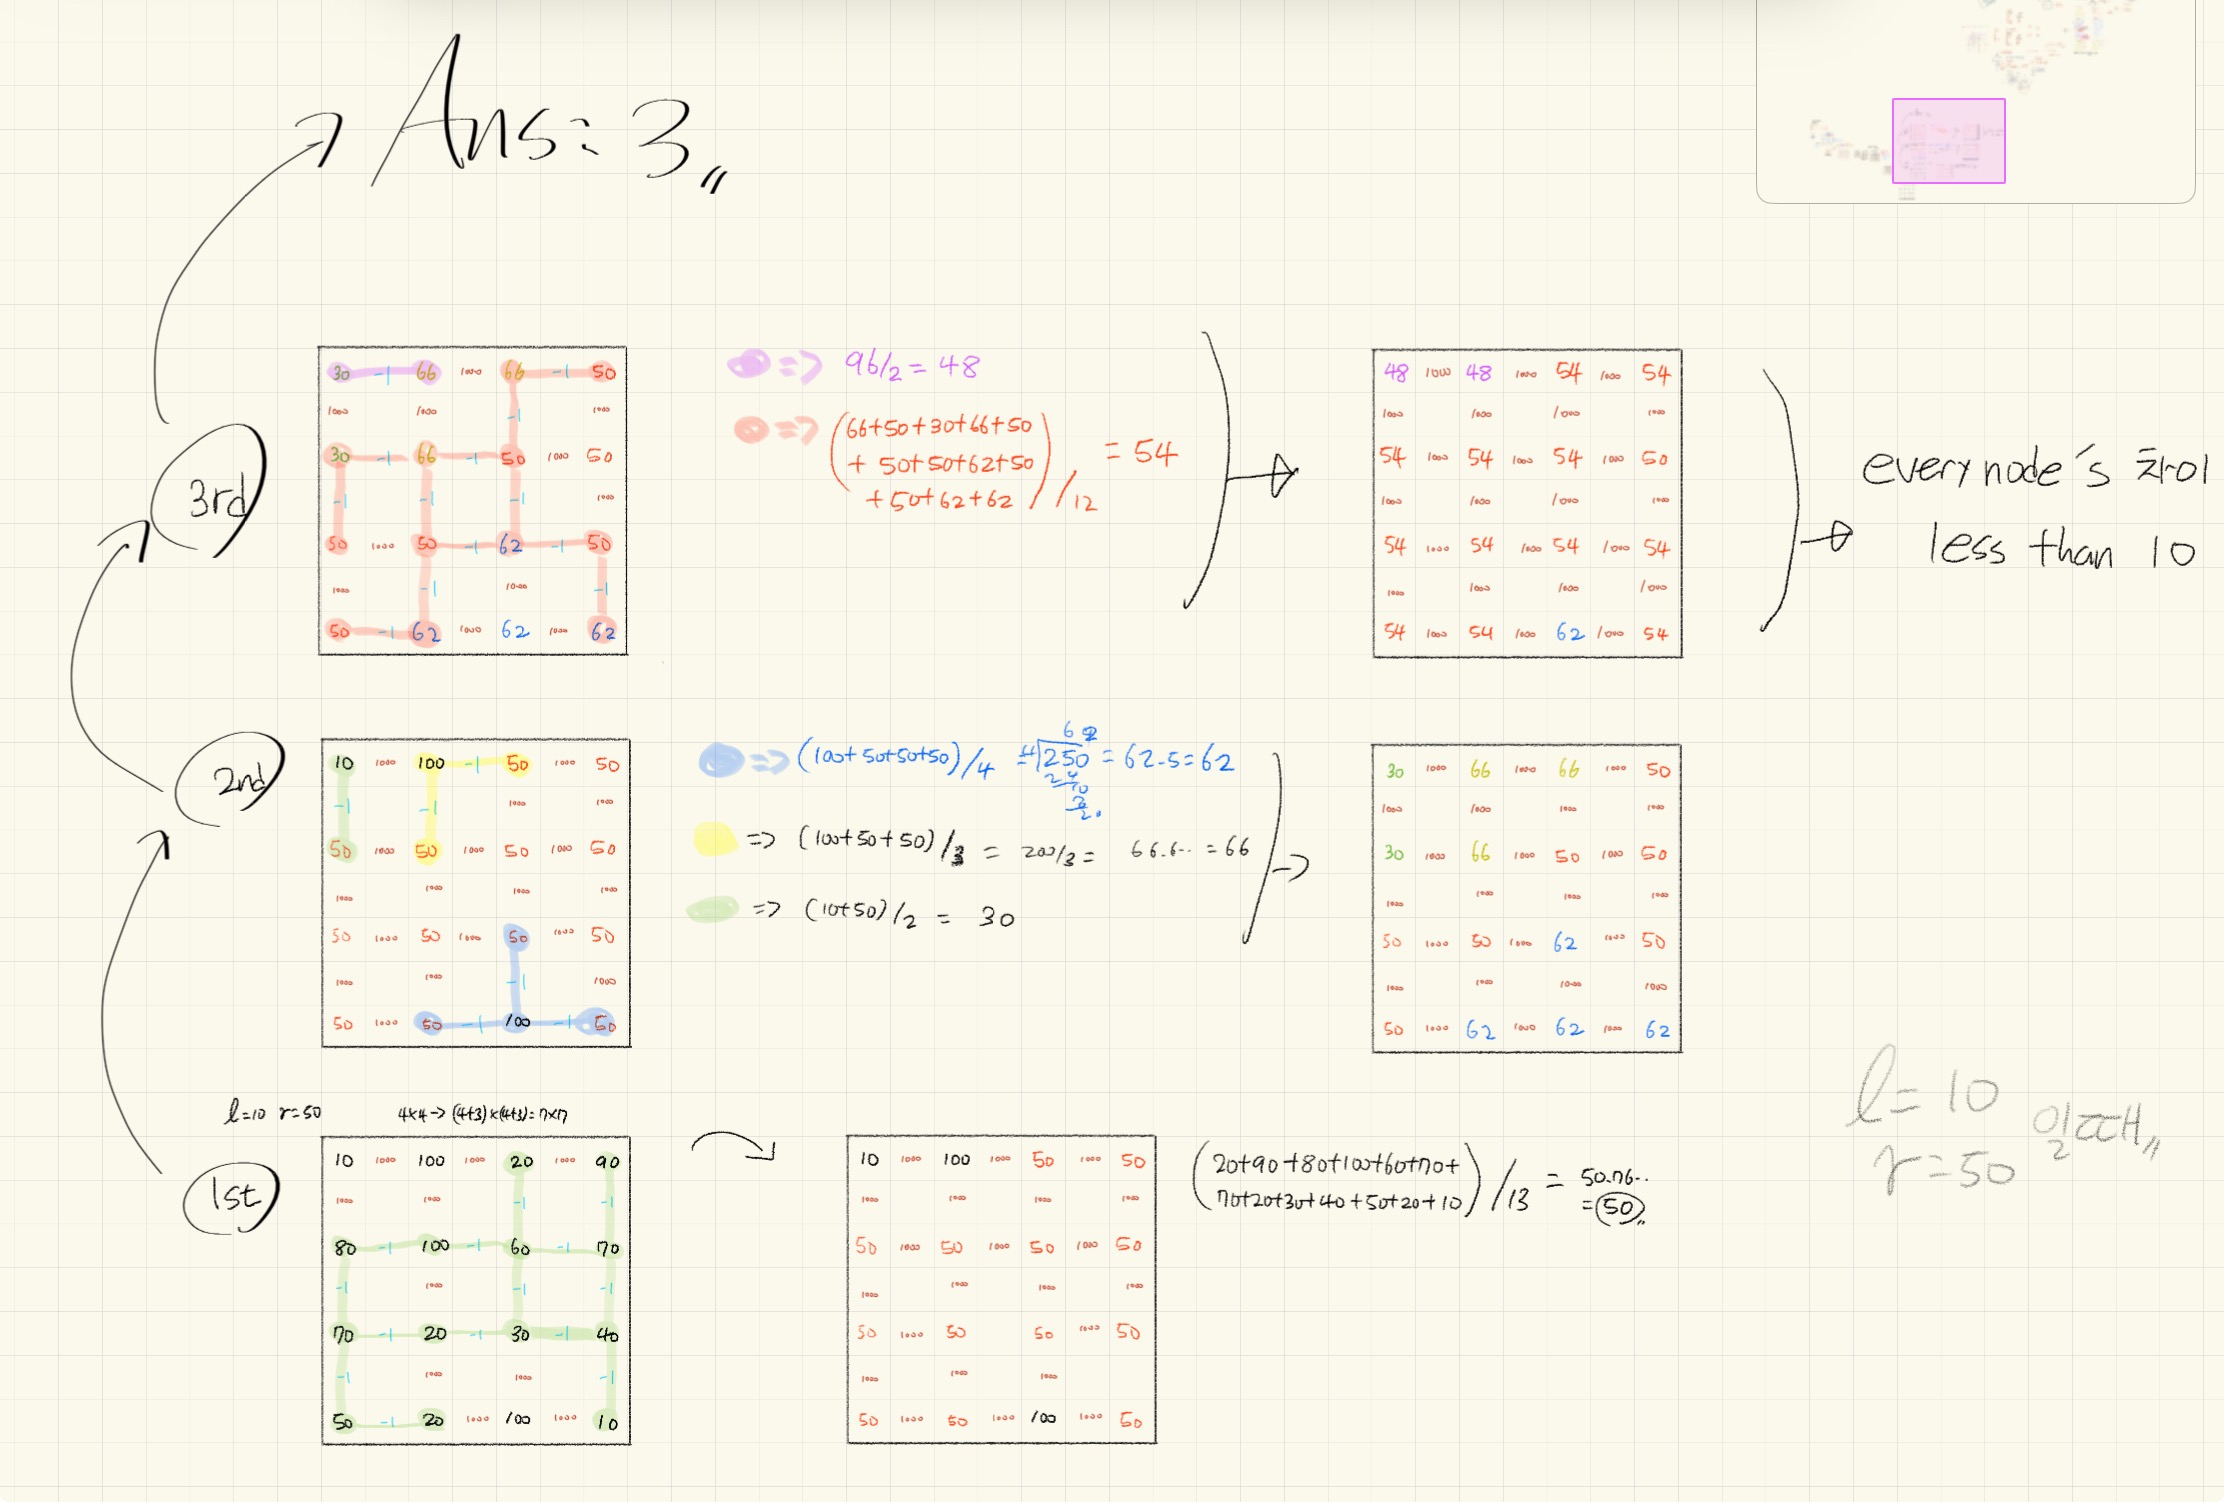 Ans: 3
3rd
30 -1 66 1000 66 -1 50
1000 1000 -1 1000
30 -1 66 -1 50 1000 50
-1 -1 -1 1000
50 1000 50 -1 62 -1 50
1000 -1 1000 -1
50 -1 62 1000 62 1000 62
=> 96/2 = 48
=> (66+50+30+66+50
+ 50+50+62+50
+50+62+62) /12 = 54
48 1000 48 1000 54 1000 54
1000 1000 1000 1000
54 1000 54 1000 54 1000 50
1000 1000 1000 1000
54 1000 54 1000 54 1000 54
1000 1000 1000 1000
54 1000 54 1000 62 1000 54
every node's 차이
less than 10
2nd
10 1000 100 -1 50 1000 50
-1 -1 1000 1000
50 1000 50 1000 50 1000 50
1000 1000 1000 1000
50 1000 50 1000 50 1000 50
1000 1000 -1 1000
50 1000 50 -1 100 -1 50
=> (100+50+50+50)/4 = 4)250 = 62.5 = 62
=> (100+50+50)/3 = 200/3 = 66.6.. = 66
=> (10+50)/2 = 30
30 1000 66 1000 66 1000 50
1000 1000 1000 1000
30 1000 66 1000 50 1000 50
1000 1000 1000 1000
50 1000 50 1000 62 1000 50
1000 1000 1000 1000
50 1000 62 1000 62 1000 62
l=10 r=50
4x4 -> (4+3)x(4+3)=7x7
1st
10 1000 100 1000 20 1000 90
1000 1000 -1 -1
80 -1 100 -1 60 -1 70
-1 1000 -1 -1
70 -1 20 -1 30 -1 40
-1 1000 1000 -1
50 -1 20 1000 100 1000 10
10 1000 100 1000 50 1000 50
1000 1000 1000 1000
50 1000 50 1000 50 1000 50
1000 1000 1000 1000
50 1000 50 50 1000 50
1000 1000 1000
50 1000 50 1000 100 1000 50
(20+90+80+100+60+70+
70+20+30+40+50+20+10) /13 = 50.76..
= 50
l=10
r=50 일때